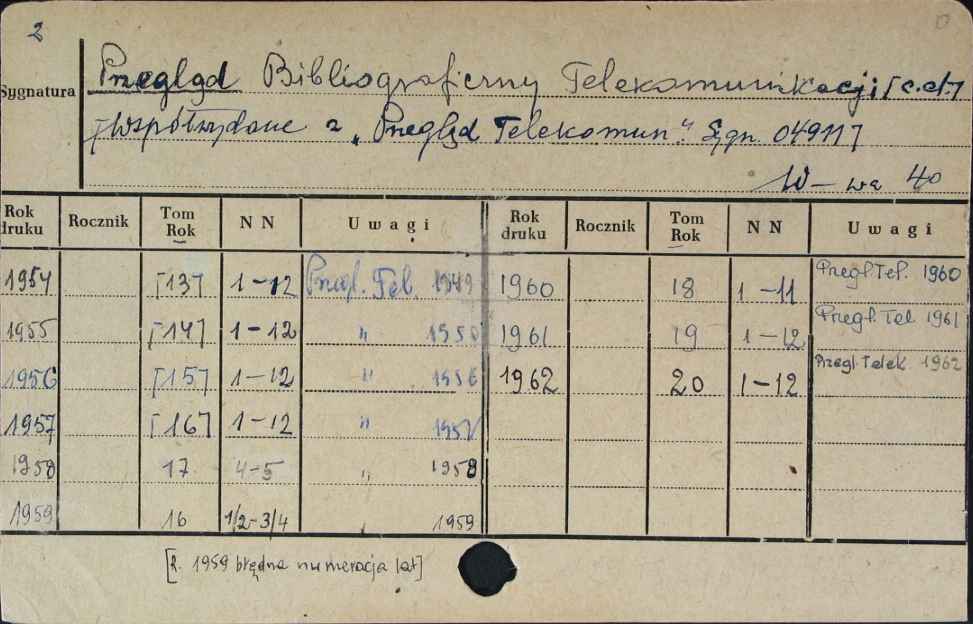 2
Sygnatura
Przegląd Bibliograficzny Telekomunikacji [c.d.]
[Współwydane z „Przegląd Telekomun." Sygn. 04911]
W-wa 40
Rok druku Rocznik Tom Rok N N Uwagi Rok druku Rocznik Tom Rok N N Uwagi
1954 [13] 1-12 Przegl. Tel. 1949 1960 18 1-11 Przegl. Tel. 1960
1955 [14] 1-12 " 1961 19 1-12 Przegl. Tel 1961
1956 [15] 1-12 " 1956 1962 20 1-12 Przegl. Telek. 1962
1957 [16] 1-12 " 1957
1958 17 4-5 " 1958
1959 16 1/2-3/4 " 1959
[R. 1959 błędna numeracja lat]